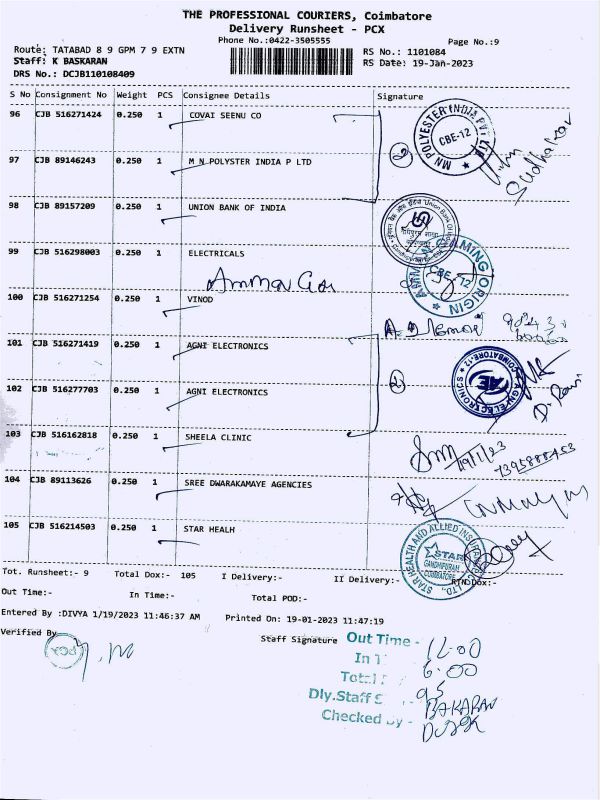 THE PROFESSIONAL COURIERS, Coimbatore
Delivery Runsheet - PCX
Phone No.:0422-3505555
Page No.:9
Route: TATABAD 8 9 GPM 7 9 EXTN
RS No.: 1101084
Staff: K BASKARAN
RS Date: 19-Jan-2023
DRS No.: DCJB110108409
S No Consignment No Weight PCS Consignee Details Signature
96 CJB 516271424 0.250 1 COVAI SEENU CO
MN POLYESTER INDIA PVT LTD
CBE-12
2
Sudhakar
97 CJB 89146243 0.250 1 M N POLYSTER INDIA P LTD
98 CJB 89157209 0.250 1 UNION BANK OF INDIA
99 CJB 516298003 0.250 1 ELECTRICALS
CBE-12
ORIGIN
100 CJB 516271254 0.250 1 VINOD
101 CJB 516271419 0.250 1 AGNI ELECTRONICS
AGNI ELECTRONICS COIMBATORE-12
AE
2
102 CJB 516277703 0.250 1 AGNI ELECTRONICS
103 CJB 516162818 0.250 1 SHEELA CLINIC
19/1/23
104 CJB 89113626 0.250 1 SREE DWARAKAMAYE AGENCIES
105 CJB 516214503 0.250 1 STAR HEALH
STAR HEALTH AND ALLIED INSURANCE CO. LTD.,
STAR
GANDHIPURAM
COIMBATORE
Tot. Runsheet:- 9 Total Dox:- 105 I Delivery:- II Delivery:- RTN Dox:-
Out Time:- In Time:- Total POD:-
Entered By :DIVYA 1/19/2023 11:46:37 AM Printed On: 19-01-2023 11:47:19
Verified By
PCX
Staff Signature
Out Time - 12.00
In T 6.00
Total 95
Dly.Staff S BAKARAN
Checked By -